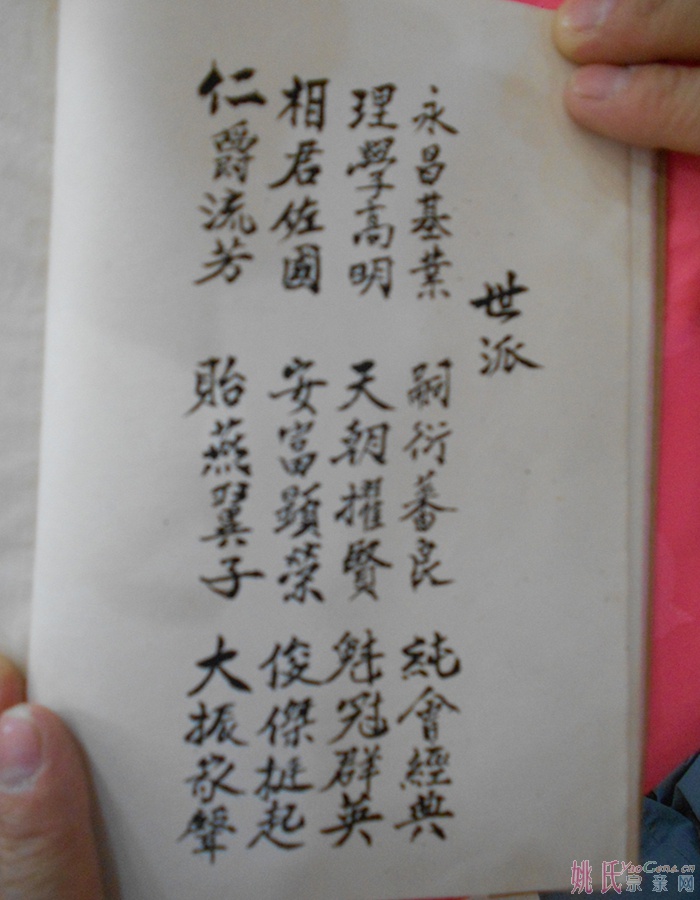 世派
永昌基業 嗣衍蕃良 純會經典
理學高明 天朝擢賢 魁冠群英
相君佐國 安富顯榮 俊傑挺起
仁爵流芳 貽燕翼子 大振家聲
姚氏 YaoGens.cn
宗亲网